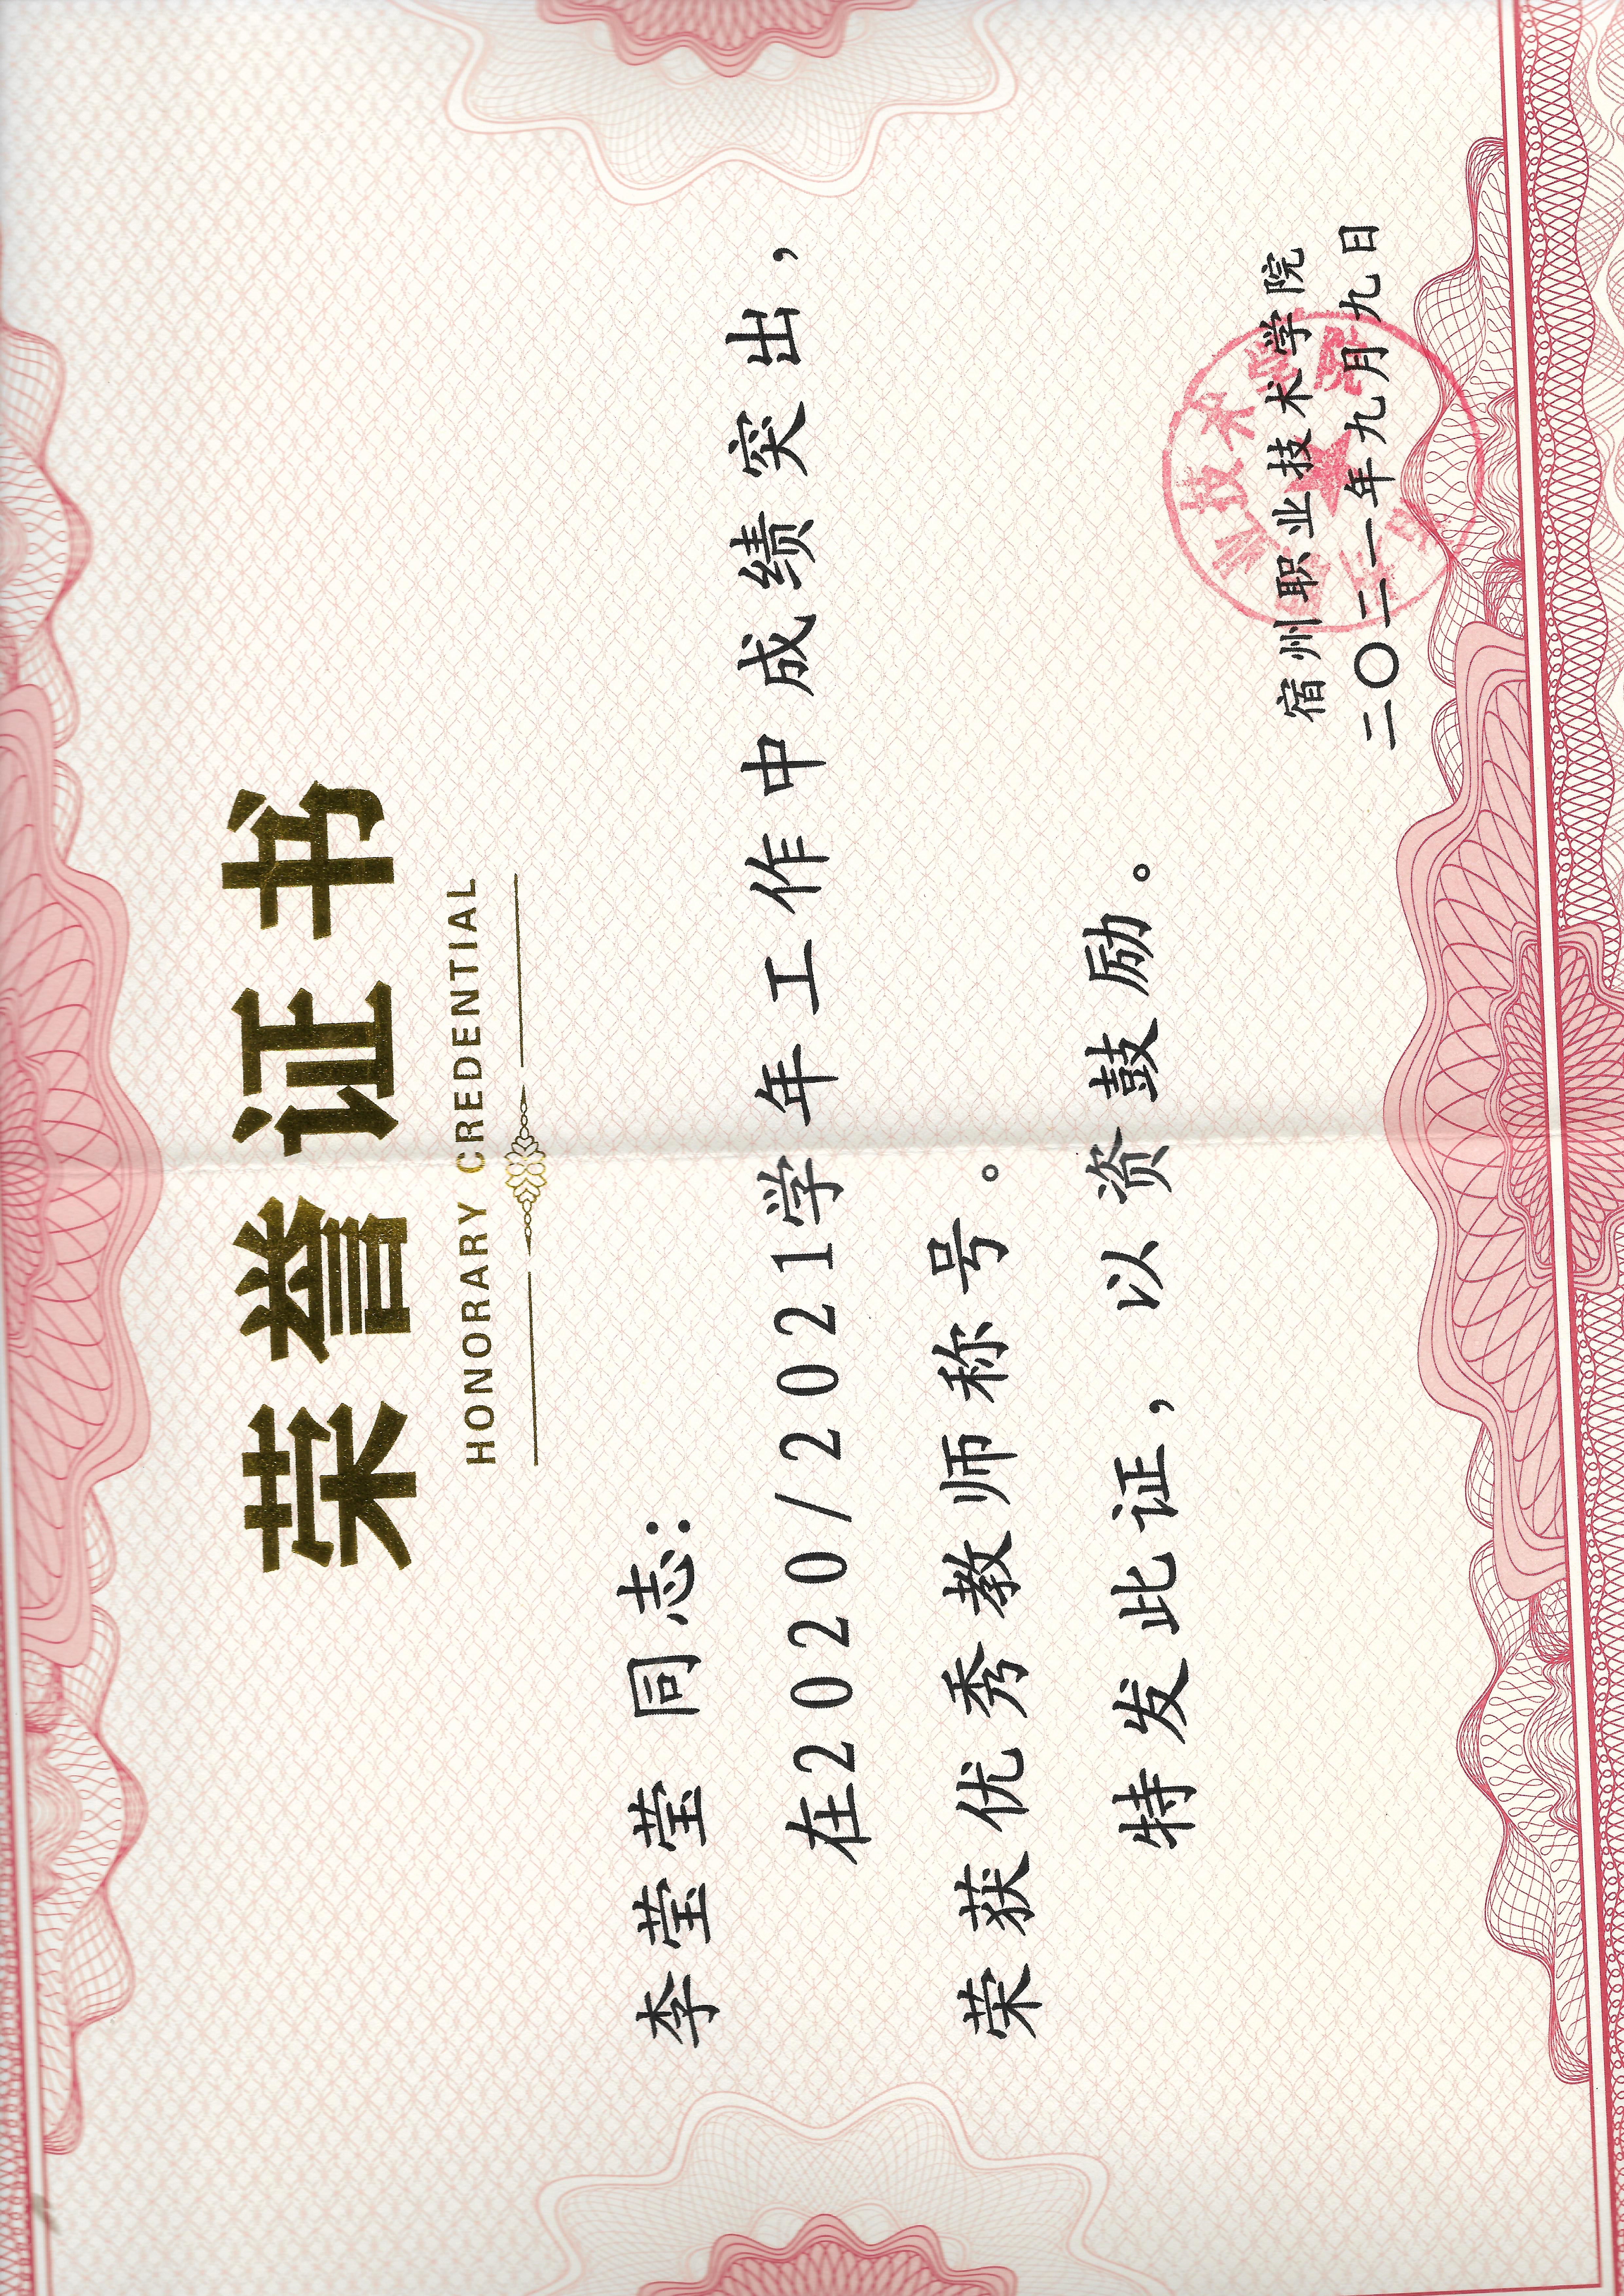 荣誉证书
HONORARY CREDENTIAL
李莹莹同志：
在2020/2021学年工作中成绩突出，
荣获优秀教师称号。
特发此证，以资鼓励。
宿州职业技术学院
二〇二一年九月九日